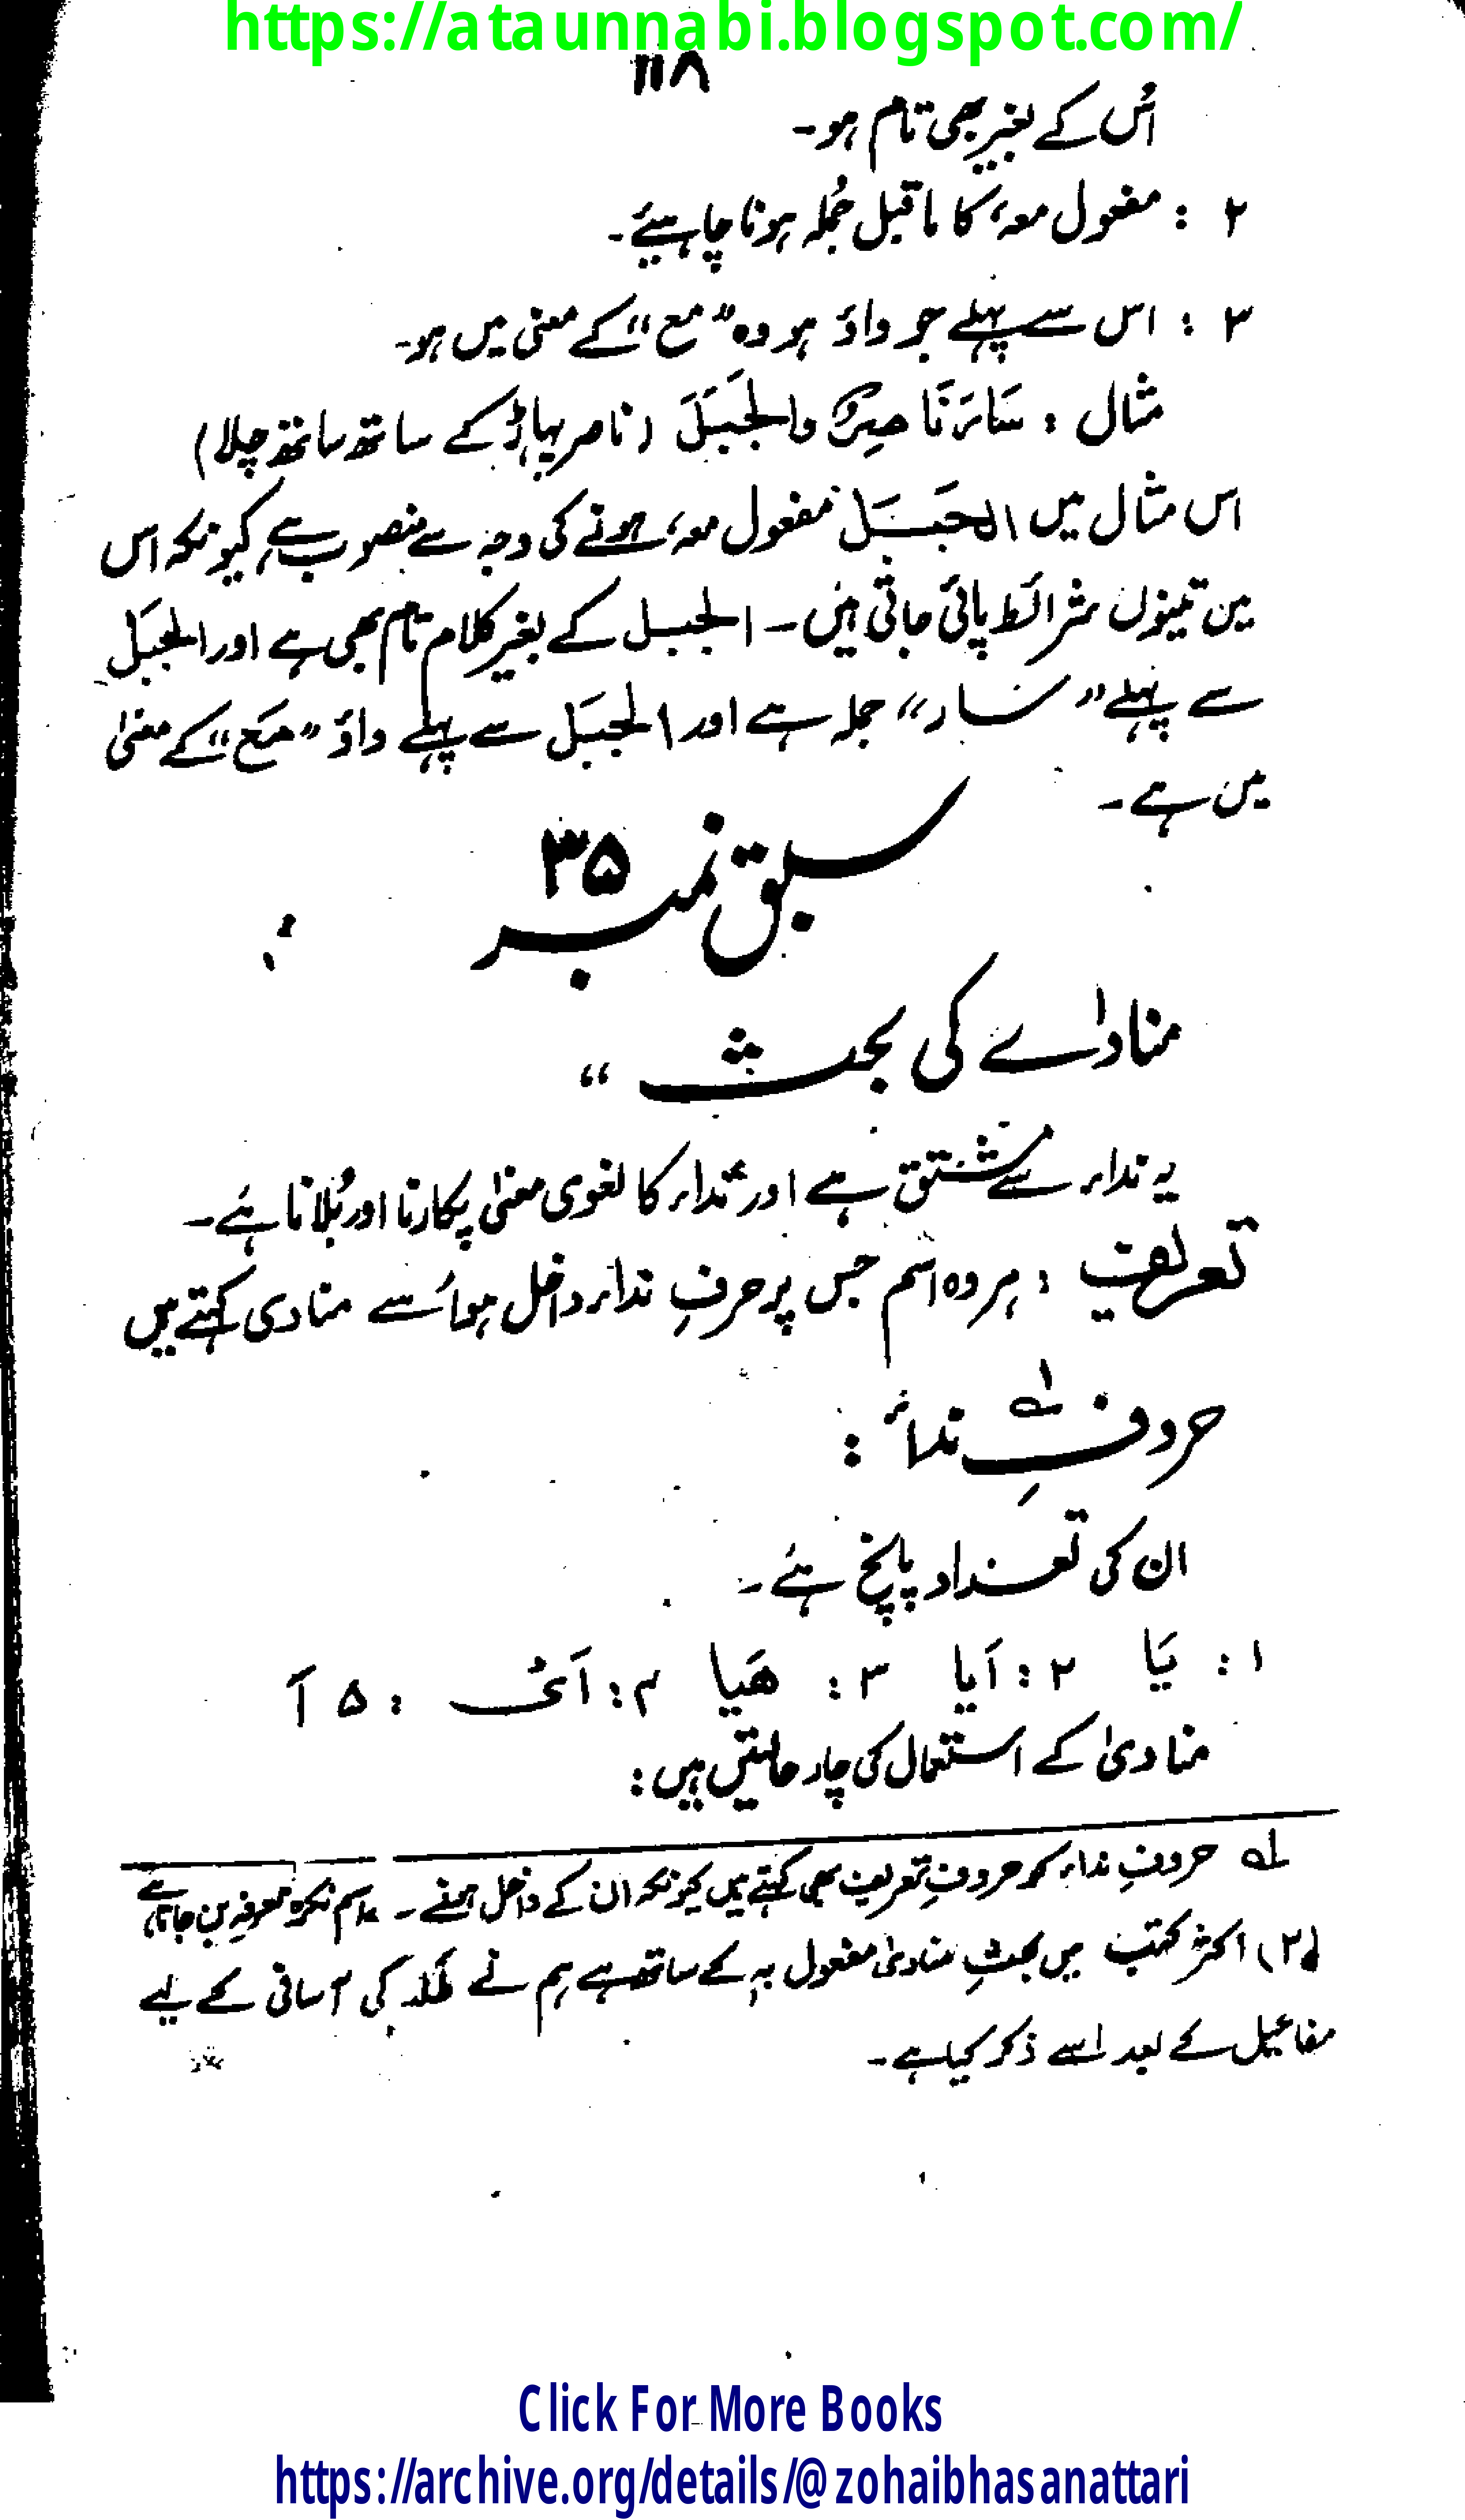 https://ataunnabi.blogspot.com/
۱۱۸
اُس کے بغیر بھی تام ہو۔
۲ : مفعول معہ، کا ماقبل جُملہ ہونا چاہیئے۔
۳ : اس سے پہلے جو واؤ ہو وہ "مع" کے معنی میں ہو۔
مثال : سَارَ نَاصِرٌ وَالْجَبَلَ (ناصر پہاڑ کے ساتھ ساتھ چلا)
اس مثال میں الجَبَلَ مفعول معہ، ہونے کی وجہ سے منصوب ہے کیونکہ اس
میں تینوں شرائط پائی جاتی ہیں۔ الجبل کے بغیر کلام تام بھی ہے اور الجبَل
سے پہلے "سَار" جملہ ہے اور الجبَل سے پہلے واؤ "مَع" کے معنیٰ
میں ہے۔
سبق نمبر ۳۵
منادٰے کی بحث "
یہ نداء سے مشتق ہے اور نداء کا لغوی معنیٰ پکارنا اور بُلانا ہَے۔
تعریف : ہر وہ اسم جس پر حرفِ نداء داخل ہو اُسے منادی کہتے ہیں
حروفِ نداء :
ان کی تعداد پانچ ہَے۔
۱ : یَا ۲ : اَیا ۳ : ھَیا ۴ : اَیْ : ۵ اَ
منادیٰ کے استعمال کی چار حالتیں ہیں :
لہ حروفِ نداء کو حروفِ تعریف بھی کہتے ہیں کیونکہ ان کے داخل ہونے ۔ اسم نکرہ معرفہ بن جاتا ہے
(۲) اکثر کتب میں بحثِ منادیٰ مفعول بہ کے ساتھ ہے ہم نے طلبہ کی آسانی کے لیے
مفاعیل کے بعد اسے ذکر کیا ہے۔
Click For More Books
https://archive.org/details/@zohaibhasanattari